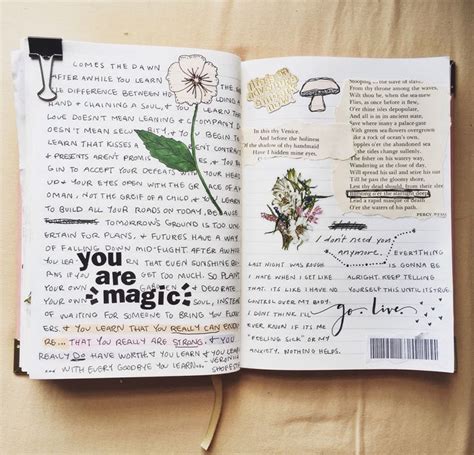 COMES THE DAWN
AFTER AWHILE YOU LEARN
THE DIFFERENCE BETWEEN HO
HAND & CHAINING A SOUL, & YO
LOVE DOESN'T MEAN LEANING & COMPANY D
OESN'T MEAN SECURITY, & YOU BEGIN TO
LEARN THAT KISSES A CONTRACT
& PRESENTS AREN'T PROMIS
GIN TO ACCEPT YOUR DEFEATS WITH YOUR HEAD
UP & YOUR EYES OPEN WITH THE GRACE OF A
OMAN, NOT THE GRIEF OF A CHILD, & YOU LEARN
TO BUILD ALL YOUR ROADS ON TODAY, BECAUSE
TOMORROW'S GROUND IS TOO UN
CERTAIN FOR PLANS, & FUTURES HAVE A WAY
OF FALLING DOWN MID-FLIGHT. AFTER AWHILE
YOU LEARN THAT EVEN SUNSHINE BU
RNS IF YOU GET TOO MUCH. SO PLANT
YOUR OWN GARDEN & DECORATE
YOUR OWN SOUL, INSTEAD
OF WAITING FOR SOMEONE TO BRING YOU FLOW
ERS. & YOU LEARN THAT YOU REALLY CAN ENDU
RE... THAT YOU REALLY ARE STRONG, & YOU
REALLY DO HAVE WORTH, & YOU LEARN & YOU LEARN
... WITH EVERY GOODBYE YOU LEARN...
VERONICA
SHOFFSTALL
you
are
magic
Stooping the slave of slave
From thy throne among the waves,
Wilt thou be, when the sea-mew
Flies, as once before it flew,
O'er thine isles depopulate,
And all is in its ancient state,
Save where many a palace-gate
With green sea-flowers overgrown
like a rock of ocean's own,
Topples o'er the abandoned sea
As the tides change sullenly.
The fisher on his watery way,
Wandering at the close of day,
Will spread his sail and seize his oar
Till he pass the gloomy shore,
Lest thy dead should, from their sleep
Bursting o'er the starlight deep,
Lead a rapid masque of death
O'er the waters of his path.
PERCY
In this thy Venice.
And before the holiness
Of the shadow of thy handmaid
Have I hidden mine eyes,
I don't need you
anymore.
EVERYTHING
LAST NIGHT WAS ROUGH.
IS GONNA BE
I HATE WHEN I GET LIKE
ALRIGHT. KEEP TELLING
THAT. ITS LIKE I HAVE NO
YOURSELF THIS UNTIL ITS TRUE.
CONTROL OVER MY BODY.
I DON'T THINK I'LL
go. live.
EVER KNOW IF ITS ME
"FEELING SICK" OR MY
ANXIETY. NOTHING HELPS.